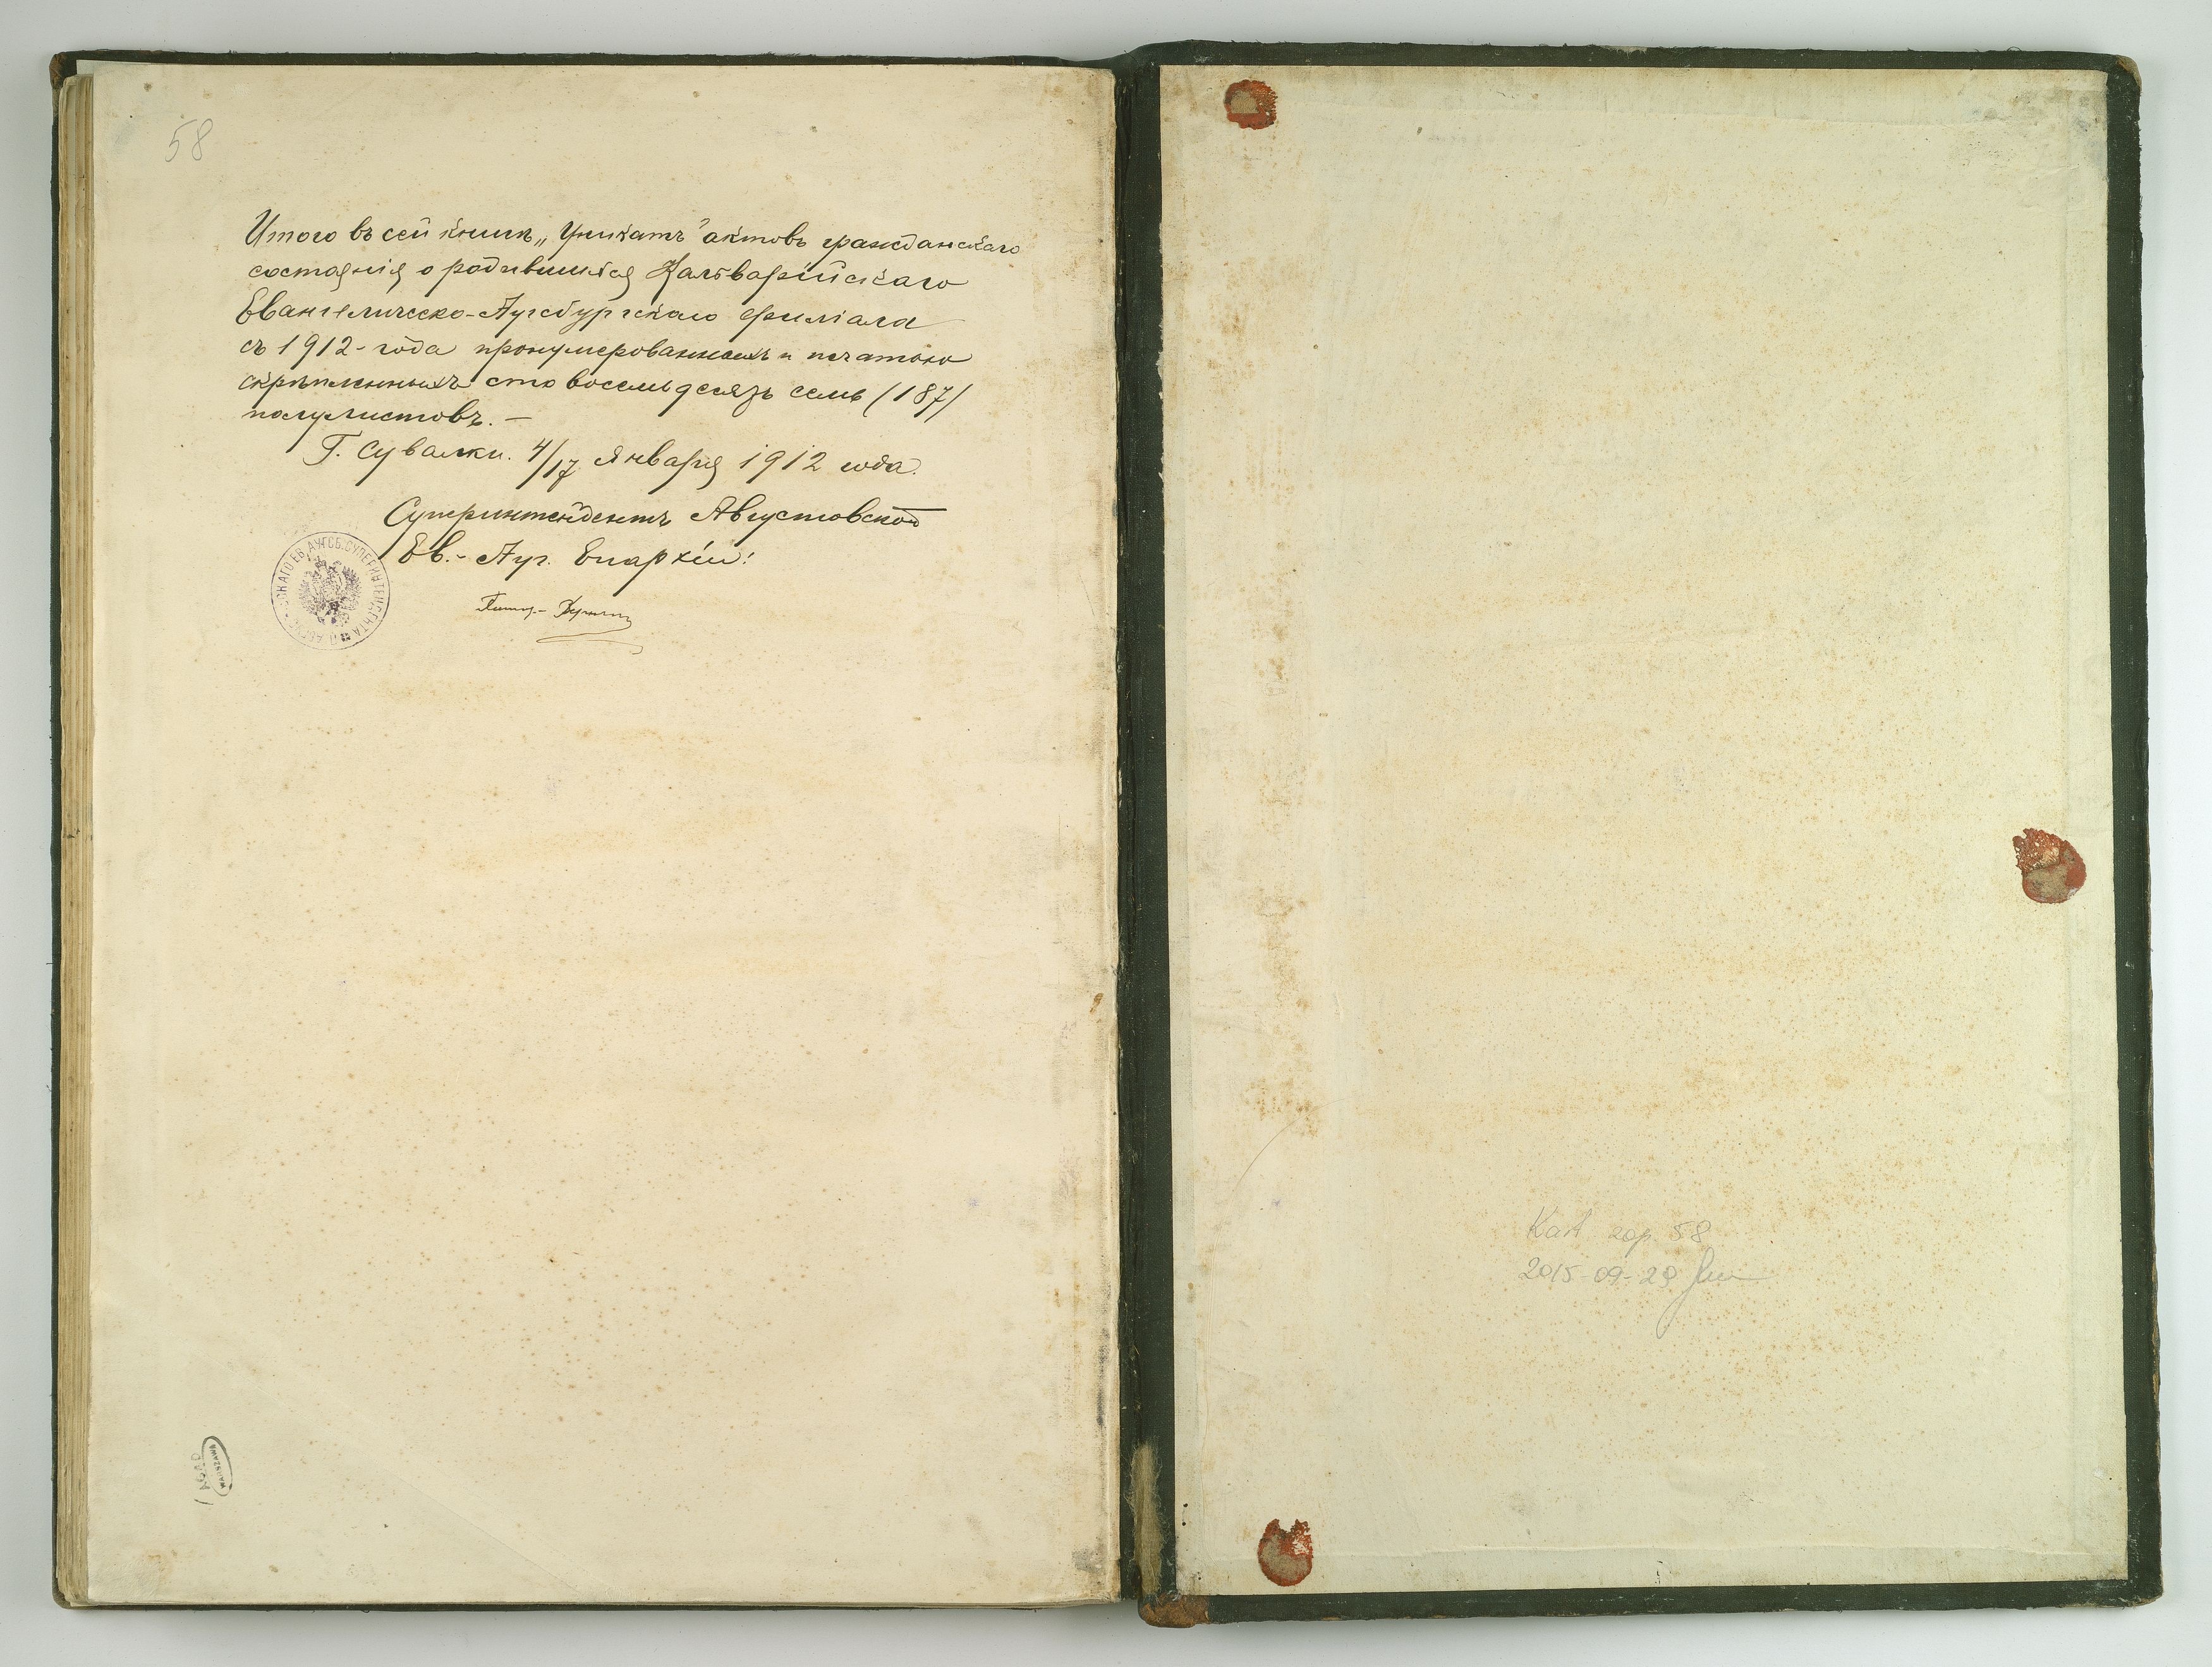 58
Итого въ сей книгѣ „Уникатъ" актовъ гражданскаго
состоянія о родившихся Кальварійскаго
Евангелическо-Аугсбургскаго филіала
съ 1912-года пронумерованныхъ и печатою
скрѣпленныхъ сто восемьдесязъ семь (187)
полулистовъ. —
Г. Сувалки. 4/17 Января 1912 года.
Суперинтендентъ Августовской
Ев.- Ауг. Епархіи:
Пасторъ-
СКАГО ЕВ. АУГСБ. СУПЕРИНТЕНДЕНТА
AGAD
WARSZAWA
Kart zap. 58
2015-09-29